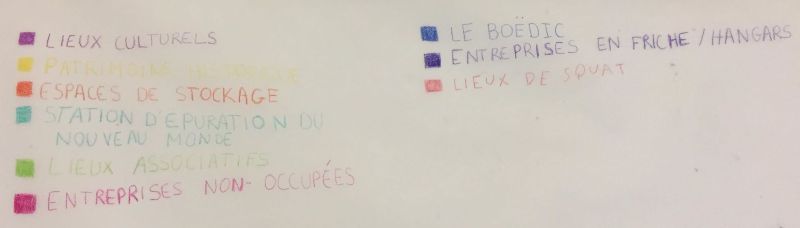 LIEUX CULTURELS
PATRIMOINE HISTORIQUE
ESPACES DE STOCKAGE
STATION D'EPURATION DU
NOUVEAU MONDE
LIEUX ASSOCIATIFS
ENTREPRISES NON-OCCUPÉES
LE BOËDIC
ENTREPRISES EN FRICHE/HANGARS
LIEUX DE SQUAT